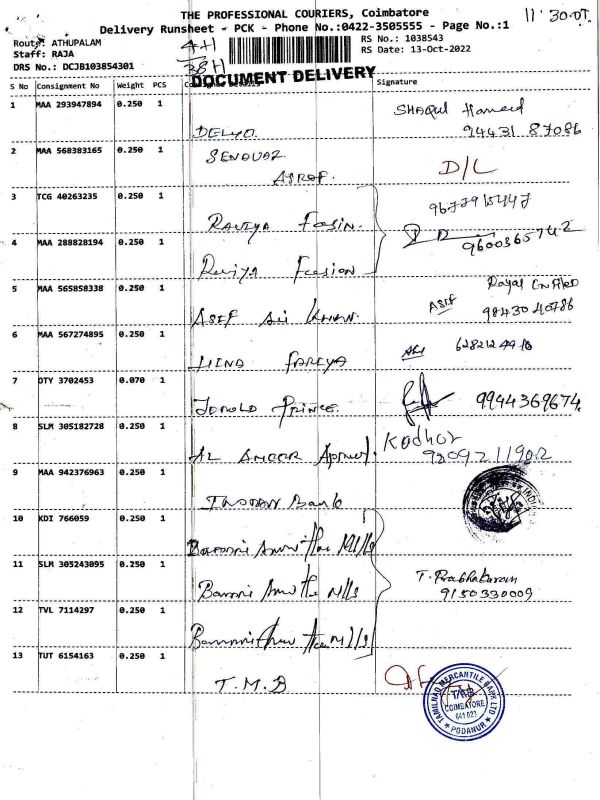 THE PROFESSIONAL COURIERS, Coimbatore
11'30.
Delivery Runsheet - PCK - Phone No.:0422-3505555 - Page No.:1
Route: ATHUPALAM
4H
RS No.: 1038543
Staff: RAJA
RS Date: 13-Oct-2022
DRS No.: DCJB103854301
38H
DOCUMENT DELIVERY
S No Consignment No Weight PCS Signature
1 MAA 293947894 0.250 1 Shaqul Hameed
94431 87086
2 MAA 568383165 0.250 1 D/L
3 TCG 40263235 0.250 1
Raviya Fasin.
4 MAA 288828194 0.250 1
9600365742
Raviya Fasion
5 MAA 565858338 0.250 1 Royal Enfield
Asif 98430 40786
ASIF ALI KHAN.
6 MAA 567274895 0.250 1
HENA FAREYA
7 OTY 3702453 0.070 1
9944369674
JEROLD PRINCE.
8 SLM 305182728 0.250 1 Kadhar
9209211902
AL AMEER
9 MAA 942376963 0.250 1
INDIAN Bank
10 KDI 766059 0.250 1
Mills
11 SLM 305243095 0.250 1 T. Prabhakaran
9150330009
Bannari Mills
12 TVL 7114297 0.250 1
Mills
13 TUT 6154163 0.250 1
T.M.B
TAMILNAD MERCANTILE BANK LTD
TMB
COIMBATORE
641 023
* PODANUR *